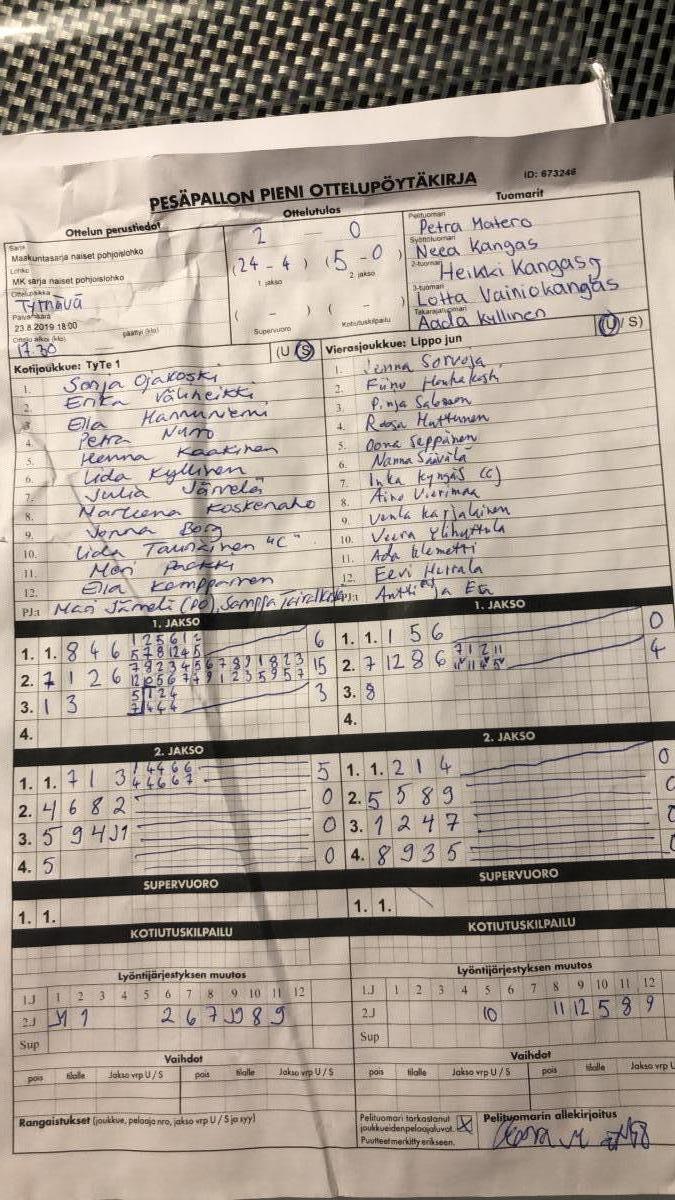 PESÄPALLON PIENI OTTELUPÖYTÄKIRJA
ID: 673246
Ottelun perustiedot
Sarja
Maakuntasarja naiset pohjoislohko
Lohko
MK sarja naiset pohjoislohko
Ottelupaikka
Tyrnävä
Päivämäärä
23.8.2019 18:00
Ottelu alkoi (klo) päättyi (klo)
17.30
Ottelutulos
2 — 0
(24 - 4) (5 - 0)
1. jakso 2. jakso
( - ) ( - )
Supervuoro Kotiutuskilpailu
Tuomarit
Pelituomari
Petra Matero
Syöttötuomari
Neea Kangas
2-tuomari
Heikki Kangas
3-tuomari
Lotta Vainiokangas
Takarajatuomari
Aada Kyllinen
Kotijoukkue: TyTe 1 (U / S)
1. Sonja Ojakoski
2. Erika Väliheikki
3. Ella Hannuniemi
4. Petra Nurro
5. Henna Kaakinen
6. Iida Kyllinen
7. Julia Järvelä
8. Marleena Koskenaho
9. Jonna Borg
10. Iida Taunainen "C"
11. Mari
12. Ella Kemppainen
PJ:t Mari Jämeli (PO), Samppa
Vierasjoukkue: Lippo jun (U / S)
1. Jenna Sorvoja
2.
3. Pinja Salonen
4. Roosa Huttunen
5. Oona Seppänen
6. Nanna Säävälä
7. Inka Kyngäs (C)
8. Aino Vierimaa
9. Venla Karjalainen
10. Veera Ylihuttula
11. Ada Klemetti
12. Eevi Herrala
PJ:t Antti ja Eta
1. JAKSO
1. 1. 8 4 6 6
2. 7 1 2 6 15
3. 1 3 3
4.
1. JAKSO
1. 1. 1 5 6 0
2. 7 12 8 6 7 1 2 11 4
3. 8
4.
2. JAKSO
1. 1. 7 1 3 1 4 4 6 6 5
4 4 6 6 7
2. 4 6 8 2 0
3. 5 9 4 11 0
4. 5 0
2. JAKSO
1. 1. 2 1 4 0
2. 5 5 8 9 0
3. 1 2 4 7 0
4. 8 9 3 5 0
SUPERVUORO
1. 1.
SUPERVUORO
1. 1.
KOTIUTUSKILPAILU
KOTIUTUSKILPAILU
Lyöntijärjestyksen muutos
1.J 1 2 3 4 5 6 7 8 9 10 11 12
2.J 11 1 2 6 7 10 8 9
Sup
Lyöntijärjestyksen muutos
1.J 1 2 3 4 5 6 7 8 9 10 11 12
2.J 10 11 12 5 8 9
Sup
Vaihdot
pois tilalle Jakso vrp U / S pois tilalle Jakso vrp U / S
Vaihdot
pois tilalle Jakso vrp U / S pois tilalle Jakso vrp U
Rangaistukset (joukkue, pelaaja nro, jakso vrp U / S ja syy)
Pelituomari tarkastanut
joukkueidenpelaajaluvat. X
Puutteet merkitty erikseen.
Pelituomarin allekirjoitus